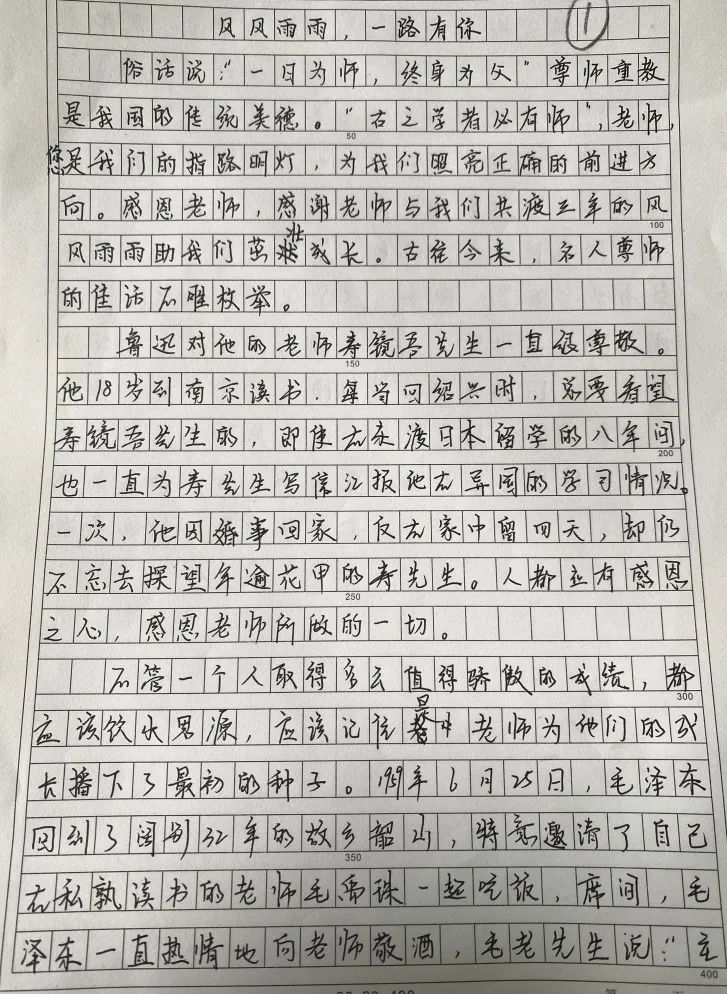 风风雨雨，一路有你 1
俗话说："一日为师，终身为父"尊师重教
是我国的传统美德。"古之学者必有师"，老师，
您是我们的指路明灯，为我们照亮正确的前进方
向。感恩老师，感谢老师与我们共渡三年的风
风雨雨助我们茁壮成长。古往今来，名人尊师
的佳话不胜枚举。
鲁迅对他的老师寿镜吾先生一直很尊敬。
他18岁到南京读书，每当回绍兴时，总要看望
寿镜吾先生的，即使在东渡日本留学的八年间，
也一直为寿先生写信汇报他在异国的学习情况。
一次，他因婚事回家，仅在家中留四天，却仍
不忘去探望年逾花甲的寿先生。人都应有感恩
之心，感恩老师所做的一切。
不管一个人取得多么值得骄傲的成绩，都
应该饮水思源，应该记住是老师为他们的成
长播下了最初的种子。1959年6月25日，毛泽东
回到了阔别32年的故乡韶山，特意邀请了自己
在私孰读书的老师毛禹珠一起吃饭，席间，毛
泽东一直热情地向老师敬酒，毛老先生说："主
50
100
150
200
250
300
350
400